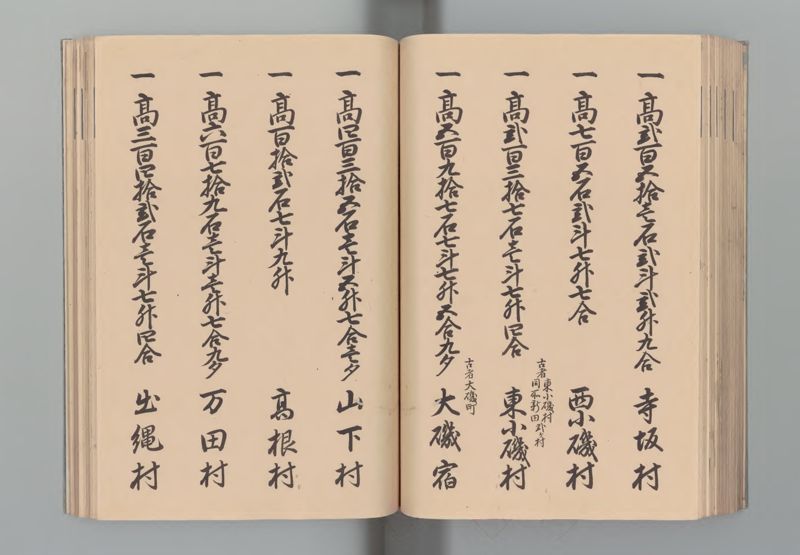 一高弐百五拾壱石弐斗弐升九合 寺坂村
一高七百五石弐斗七升七合 西小磯村
一高弐百三拾七石壱斗七升四合 東小磯村
古者東小磯村
同所新田弐ヶ村
一高五百九拾七石七斗七升五合九夕 大磯宿
古者大磯町
一高四百三拾五石壱斗五升七合壱夕 山下村
一高百拾弐石七斗九升 高根村
一高六百七拾九石壱斗壱升七合九夕 万田村
一高三百四拾弐石壱斗七升四合 出縄村